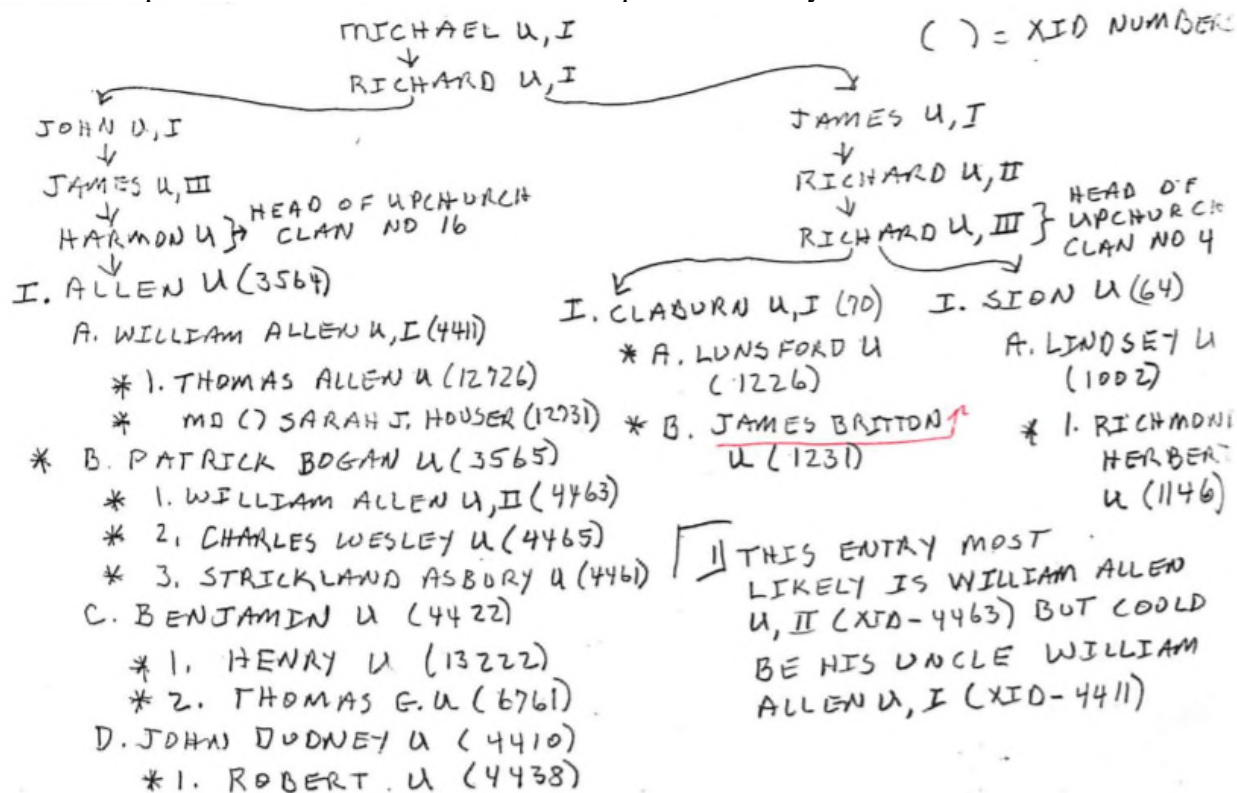 MICHAEL U, I
( ) = XID NUMBER
RICHARD U, I
JOHN U, I
JAMES U, III
HARMON U } HEAD OF UPCHURCH
CLAN NO 16
I. ALLEN U (3564)
A. WILLIAM ALLEN U, I (4411)
* 1. THOMAS ALLEN U (12726)
* MD () SARAH J. HOUSER (12731)
* B. PATRICK BOGAN U (3565)
* 1. WILLIAM ALLEN U, II (4463)
* 2. CHARLES WESLEY U (4465)
* 3. STRICKLAND ASBURY U (4461)
C. BENJAMIN U (4422)
* 1. HENRY U (13222)
* 2. THOMAS G. U (6761)
D. JOHN DUDNEY U (4410)
* 1. ROBERT. U (4438)
JAMES U, I
RICHARD U, II
RICHARD U, III } HEAD OF
UPCHURCH
CLAN NO 4
I. CLABURN U, I (70)
* A. LUNSFORD U
(1226)
* B. JAMES BRITTON
U (1231)
I. SION U (64)
A. LINDSEY U
(1002)
* 1. RICHMON
HERBER
U (1146)
1 THIS ENTRY MOST
LIKELY IS WILLIAM ALLEN
U, II (XID-4463) BUT COULD
BE HIS UNCLE WILLIAM
ALLEN U, I (XID-4411)